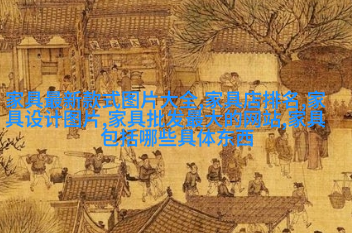 家具最新款式图片大全,家具店排名,家
具设计图片,家具批发最大的网站,家具
包括哪些具体东西